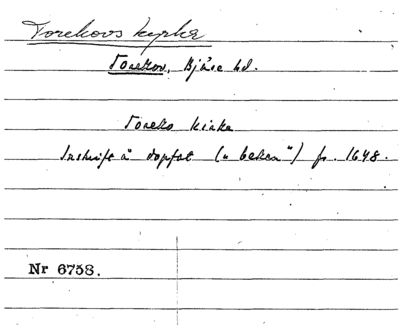 Torekovs kyrka
Torekov, Bjäre hd.
Toreko kirke
Inskrift å dopfat („beken“) fr. 1648.
Nr 6758.